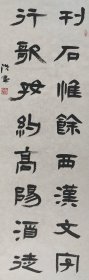 刊石惟餘西漢文字
行歌攷約高陽酒徒